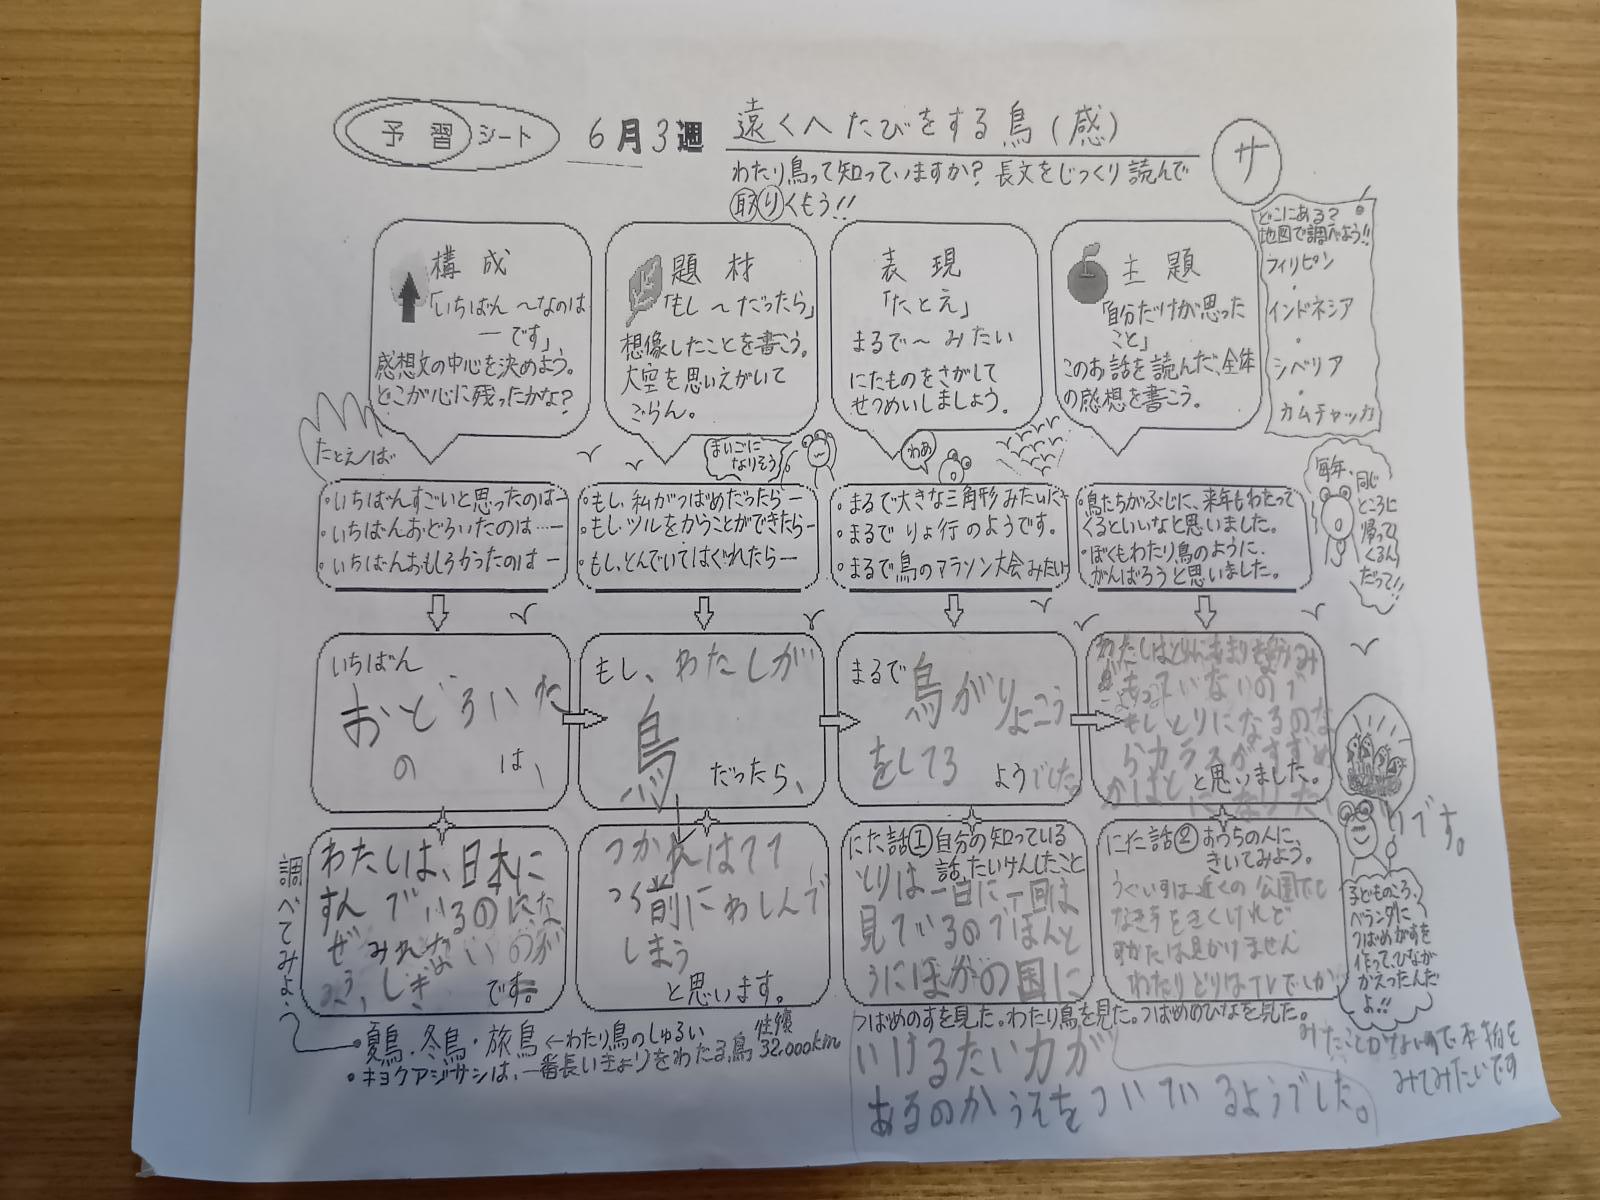 予習シート
6月3週
遠くへたびをする鳥(感)
サ
わたり鳥って知っていますか?長文をじっくり読んで
取りくもう!!
どこにある?
地図で調べよう!!
フィリピン
・
インドネシア
・
シベリア
・
カムチャッカ
構成
「いちばん〜なのは
―です」
感想文の中心を決めよう。
どこが心に残ったかな?
題材
「もし〜だったら」
想像したことを書こう。
大空を思いえがいて
ごらん。
表現
「たとえ」
まるで〜みたい
にたものをさがして
せつめいしましょう。
主題
「自分だけが思った
こと」
このお話を読んだ、全体
の感想を書こう。
たとえば
まいごに
なりそう
わあ
毎年、同じ
ところに
帰って
くるん
だって!!
・いちばんすごいと思ったのは―
・いちばんおどろいたのは…―
・いちばんおもしろかったのは―
・もし、私がつばめだったら―
・もし、ツルをかうことができたら―
・もし、とんでいてはぐれたら―
・まるで大きな三角形みたいに
・まるでりょ行のようです。
・まるで鳥のマラソン大会みたい
・鳥たちがぶじに、来年もわたって
くるといいなと思いました。
・ぼくもわたり鳥のように、
がんばろうと思いました。
いちばん
おどろいた
のは、
もし、わたしが
鳥
だったら、
まるで
鳥がりょこう
をしてる ようでした。
わたしはとりにあまり
もっていないので
もしとりになるのな
らカラスがすずめ
と思いました。
かはとになりたいです。
調べてみよう
わたしは、日本に
すんでいるのにな
ぜみれないのが
ふしぎ
です。
つかれはてて
つく前にわしんで
しまう
と思います。
にた話①自分の知っている
話、たいけんしたこと
とりは一日に一回は
見ているのでほんと
うにほかの国に
いけるたい力が
あるのかうそをついているようでした。
にた話②おうちの人に、
きいてみよう。
うぐいすは近くの公園でも
なき声をきくけれど
すがたは見かりません
わたりどりはTVでしか
みたことがないので本物を
みてみたいです
子どものころ、
ベランダに
つばめがすを
作って、ひなが
かえったんだ
よ!!
つばめのすを見た。わたり鳥を見た。つばめのひなを見た。
・夏鳥・冬鳥・旅鳥←わたり鳥のしゅるい
・キョクアジサシは、一番長いきょりをわたる鳥 往復
32,000km